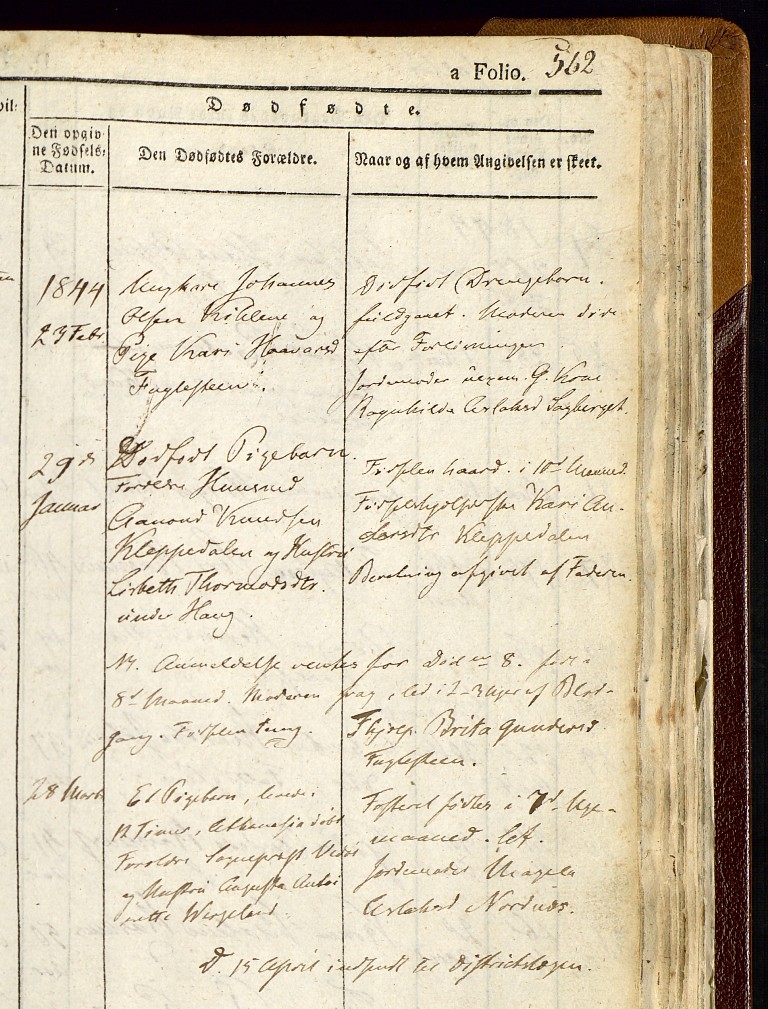 a Folio. 562
Dødfødte.
Den opgiv-
ne Fødsels-
Datum.
Den Dødfødtes Forældre.
Naar og af hvem Angivelsen er skeet.
1844
23 Febr
Ungkarl Johannes
Olsen og
Pige Kari Haavarsd
Fuglesteen.
Dødfødt Drengebarn.
fuldgaaet. Moderen døde
efter Forløsningen.
Jordemoder G. Krae
Ragnhilde Aslaksd Sagberget.
29de
Januar
Dødfødt Pigebarn.
Forældre Huusmd
Aamond Knudsen
Kleppedalen og Hustru
Lisbeth Thormodsdtr.
under Haug.
Fødselen haard. i 10d Maaned.
Fødselshjelperske Kari An-
dersdtr Kleppedalen
Beretning afgivet af Faderen.
N. Anmeldelse ventes for Død No 8. født i
8d Maaned. Moderen svag, led i 2-3 Uger af Blod-
gang. Fødselen tung. Fhjelp. Brita Gundersd
Fuglesteen.
28 Marts
Et Pigebarn, levede
12 Timer, Athanasia døbt
Forældre Sognepræst
og Hustru Augusta Antoi
nette Wergeland.
Fosteret fødtes i 7d
maaned. let.
Jordemoder
Aslaksd Nordnæs.
D. 15 April indsendt til Districtslægen.